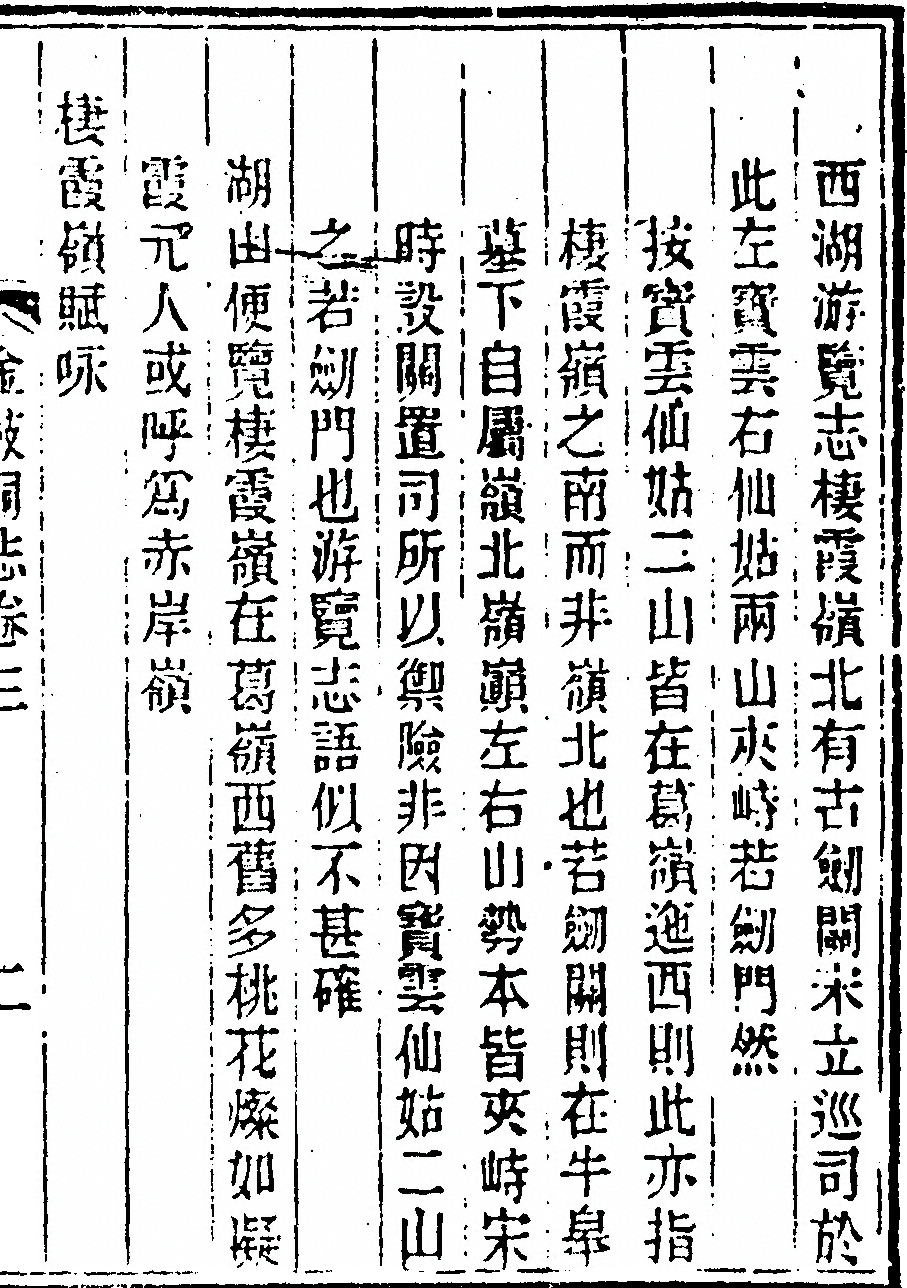 西湖游覽志棲霞嶺北有古劒關宋立巡司於
此左寶雲右仙姑兩山夾峙若劒門然
按寶雲仙姑二山皆在葛嶺迤西則此亦指
棲霞嶺之南而非嶺北也若劒關則在牛皐
墓下自屬嶺北嶺巔左右山勢本皆夾峙宋
時設關置司所以禦險非因寶雲仙姑二山
之若劒門也游覽志語似不甚確
湖山便覽棲霞嶺在葛嶺西舊多桃花燦如凝
霞元人或呼爲赤岸嶺
棲霞嶺賦咏
金鼓洞志卷三
二